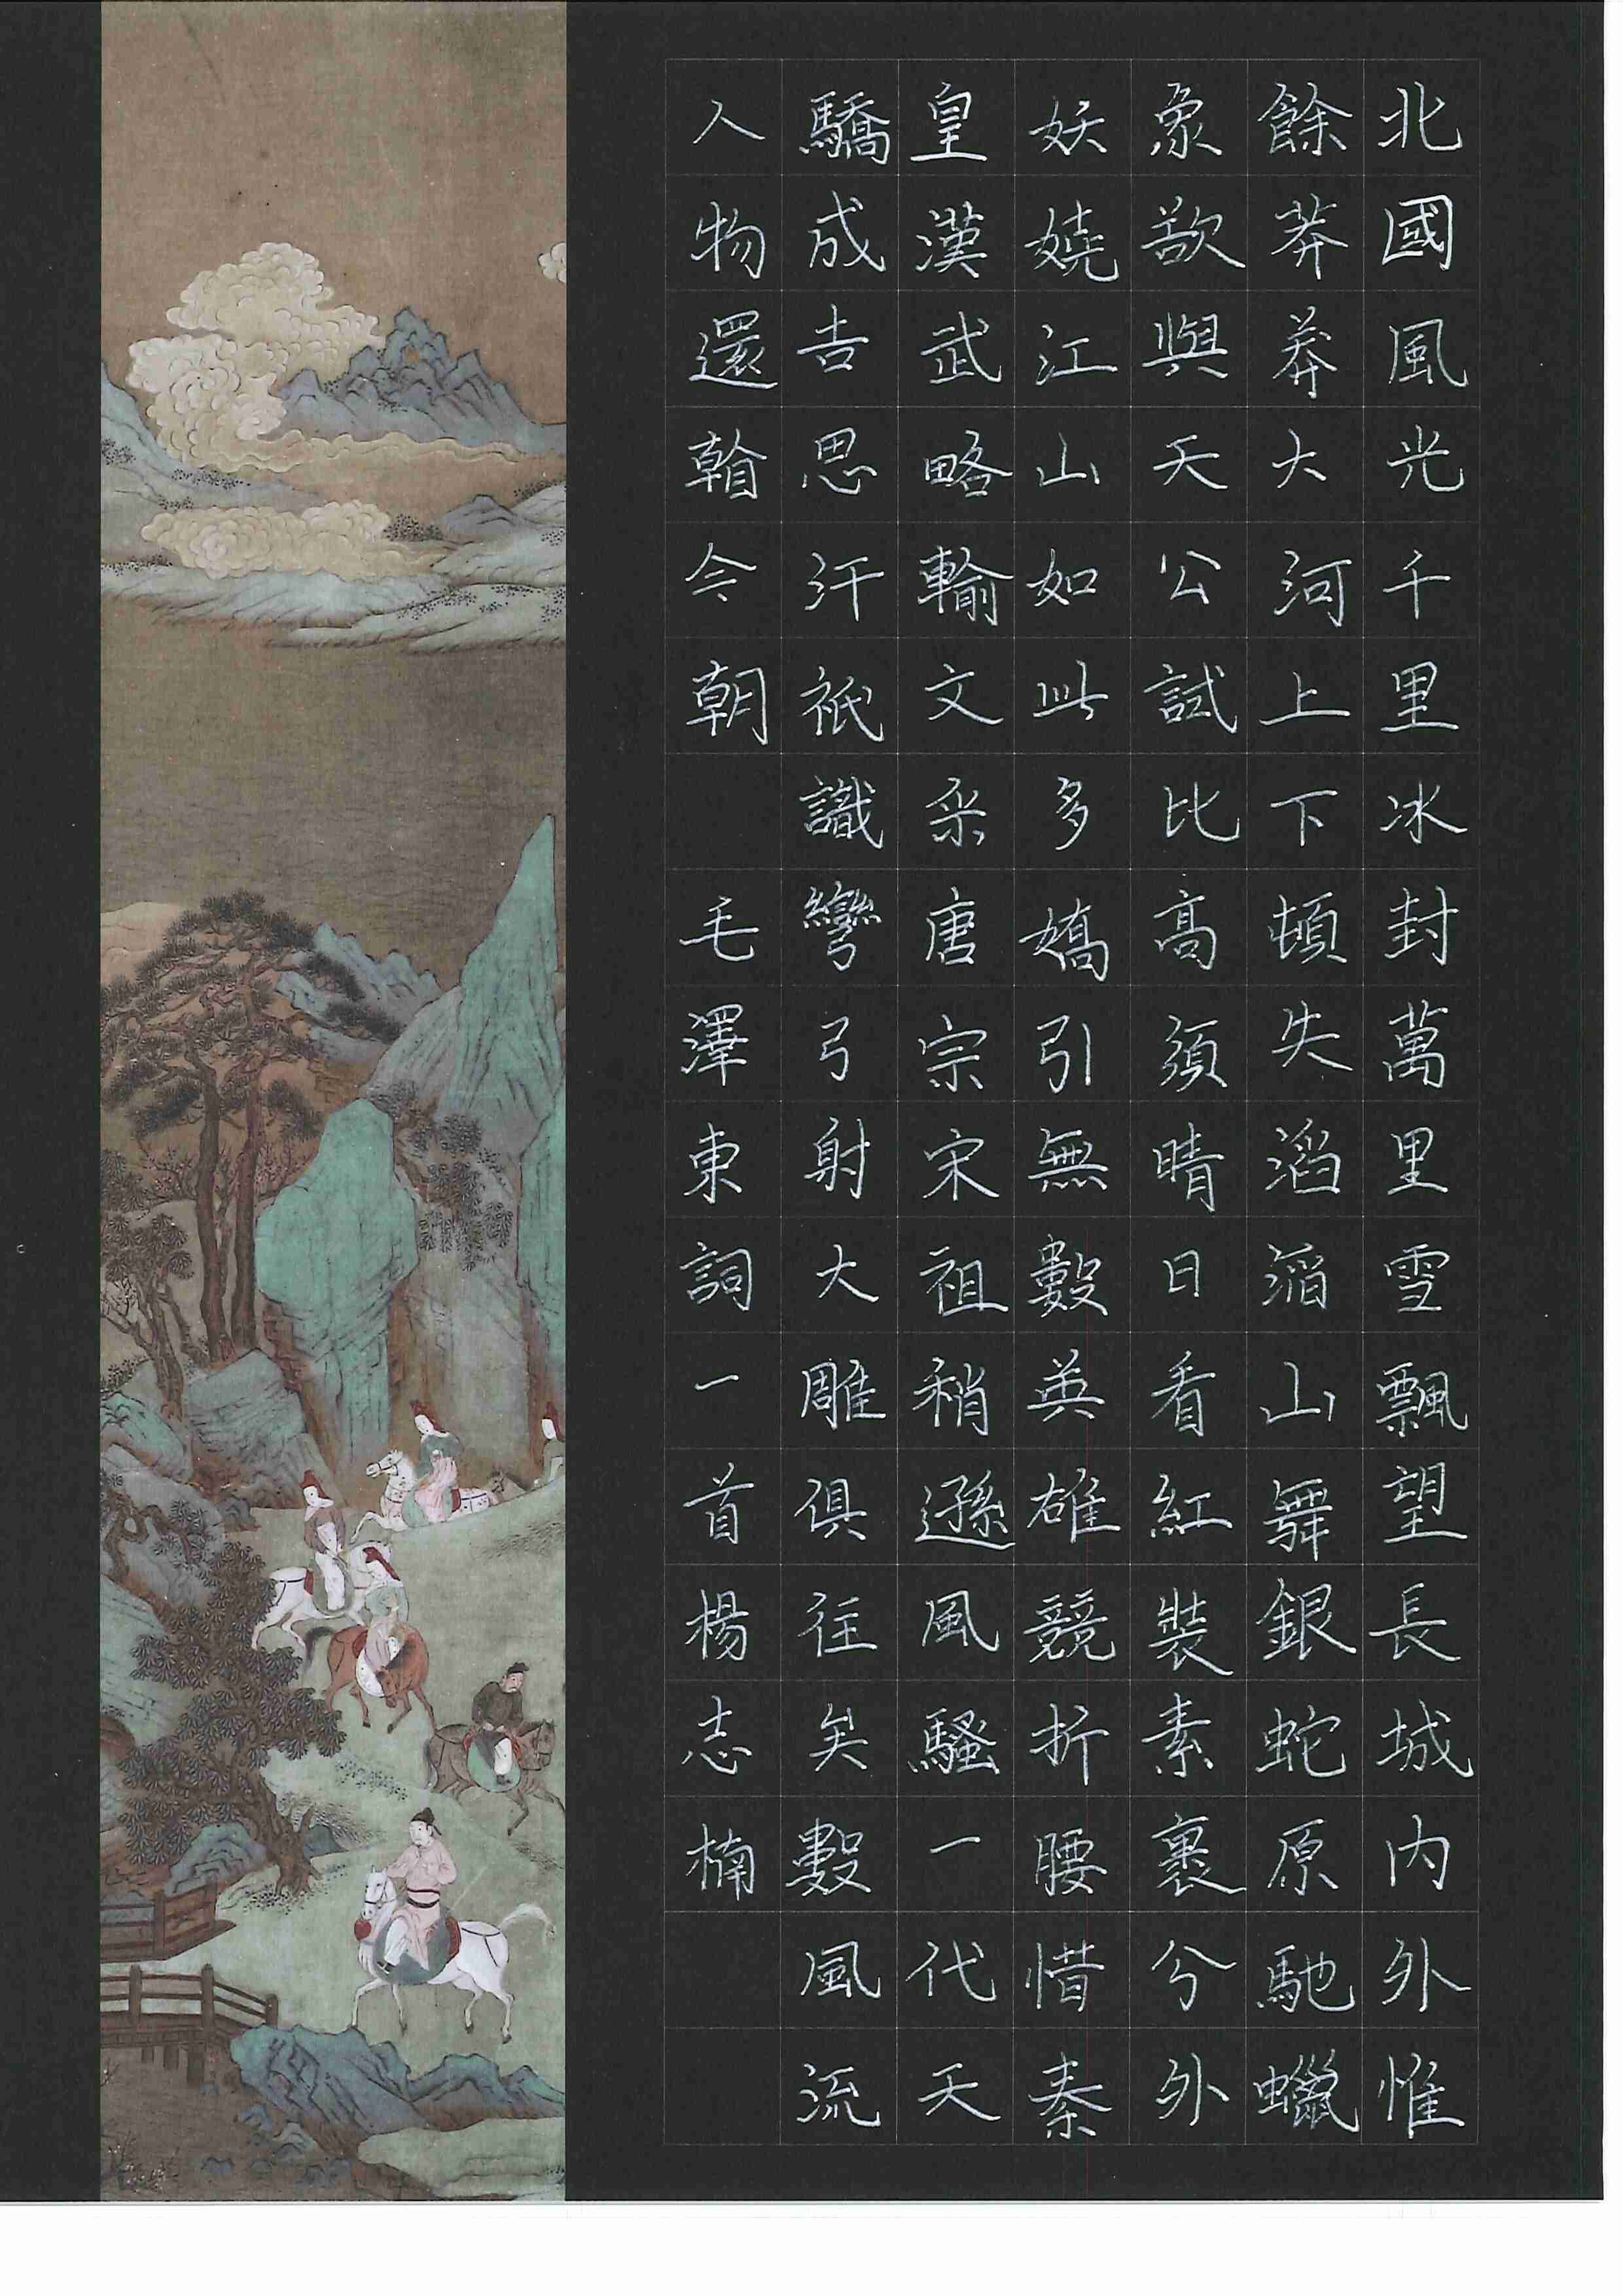 北國風光千里冰封萬里雪飄望長城内外惟
餘莽莽大河上下頓失滔滔山舞銀蛇原馳蠟
象欲與天公試比高須晴日看紅裝素裹分外
妖嬈江山如此多嬌引無數英雄競折腰惜秦
皇漢武略輸文采唐宗宋祖稍遜風騷一代天
驕成吉思汗祇識彎弓射大雕俱往矣數風流
人物還看今朝 毛澤東詞一首楊志楠